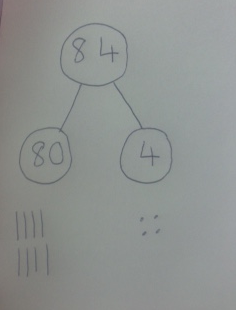 84
80 4